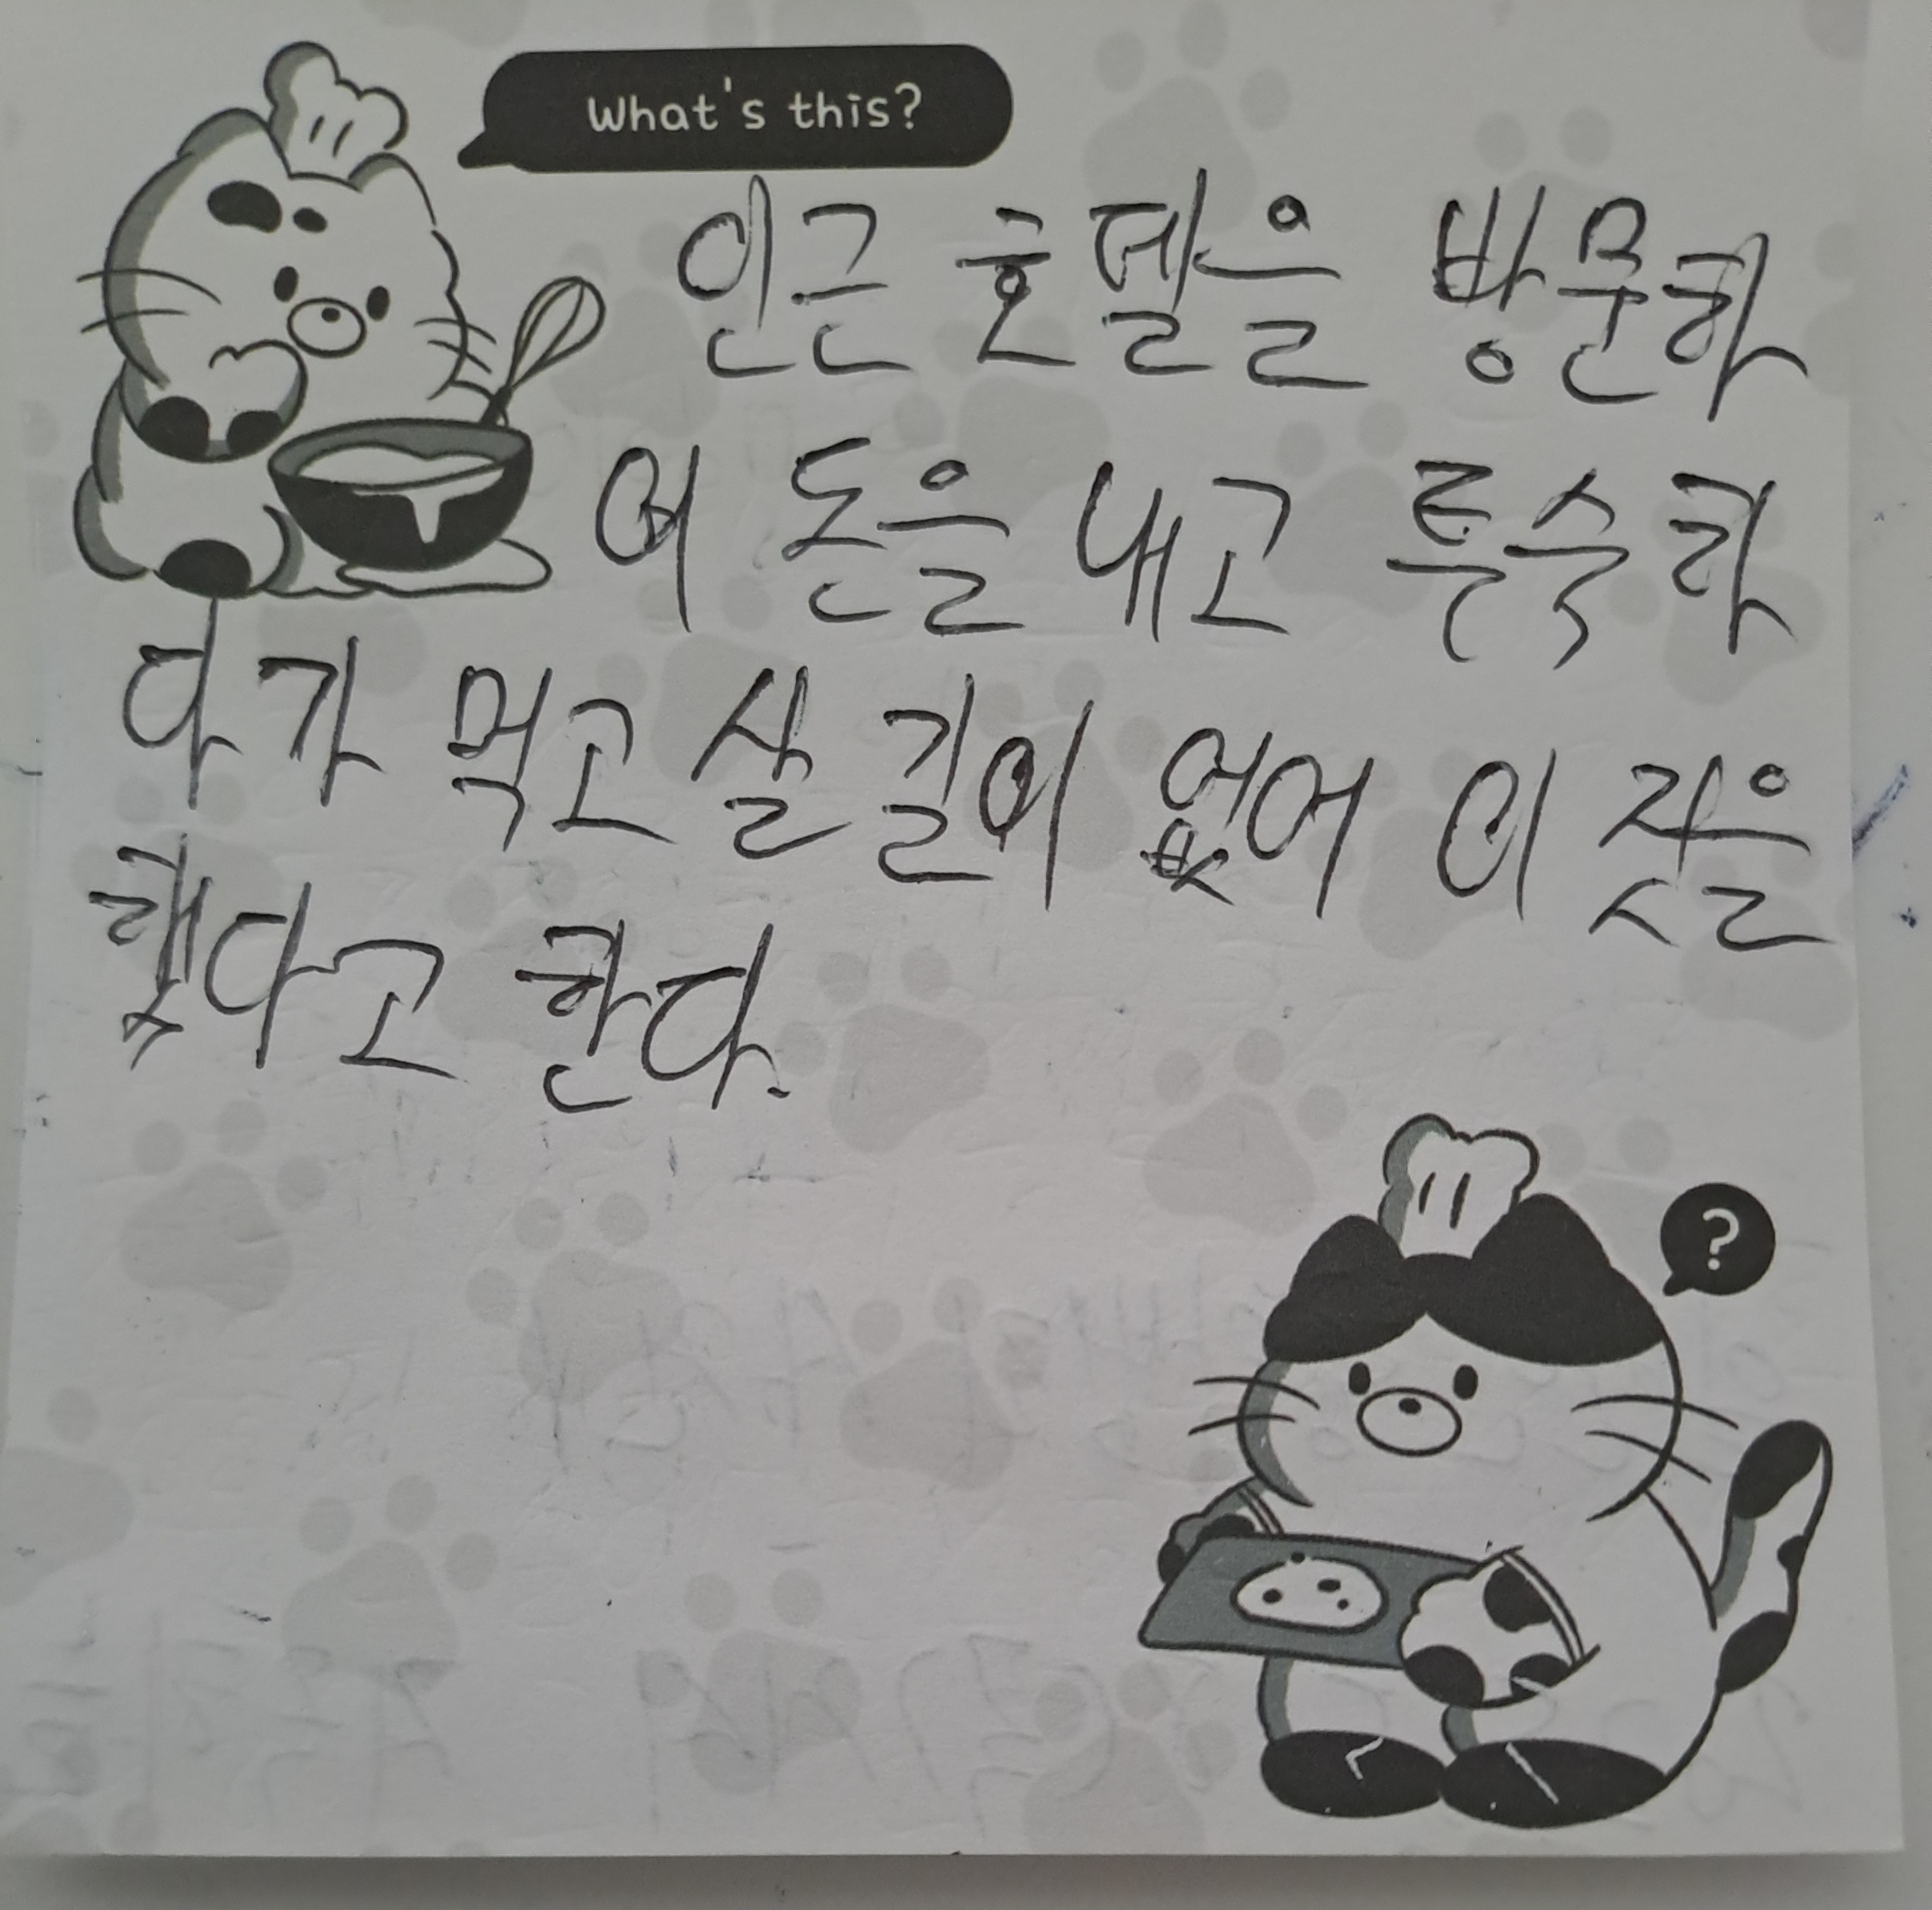 What's this?
인근 호텔을 방문하
여 돈을 내고 투숙하
다가 먹고 살 길이 없어 이 짓을
했다고 한다.
?